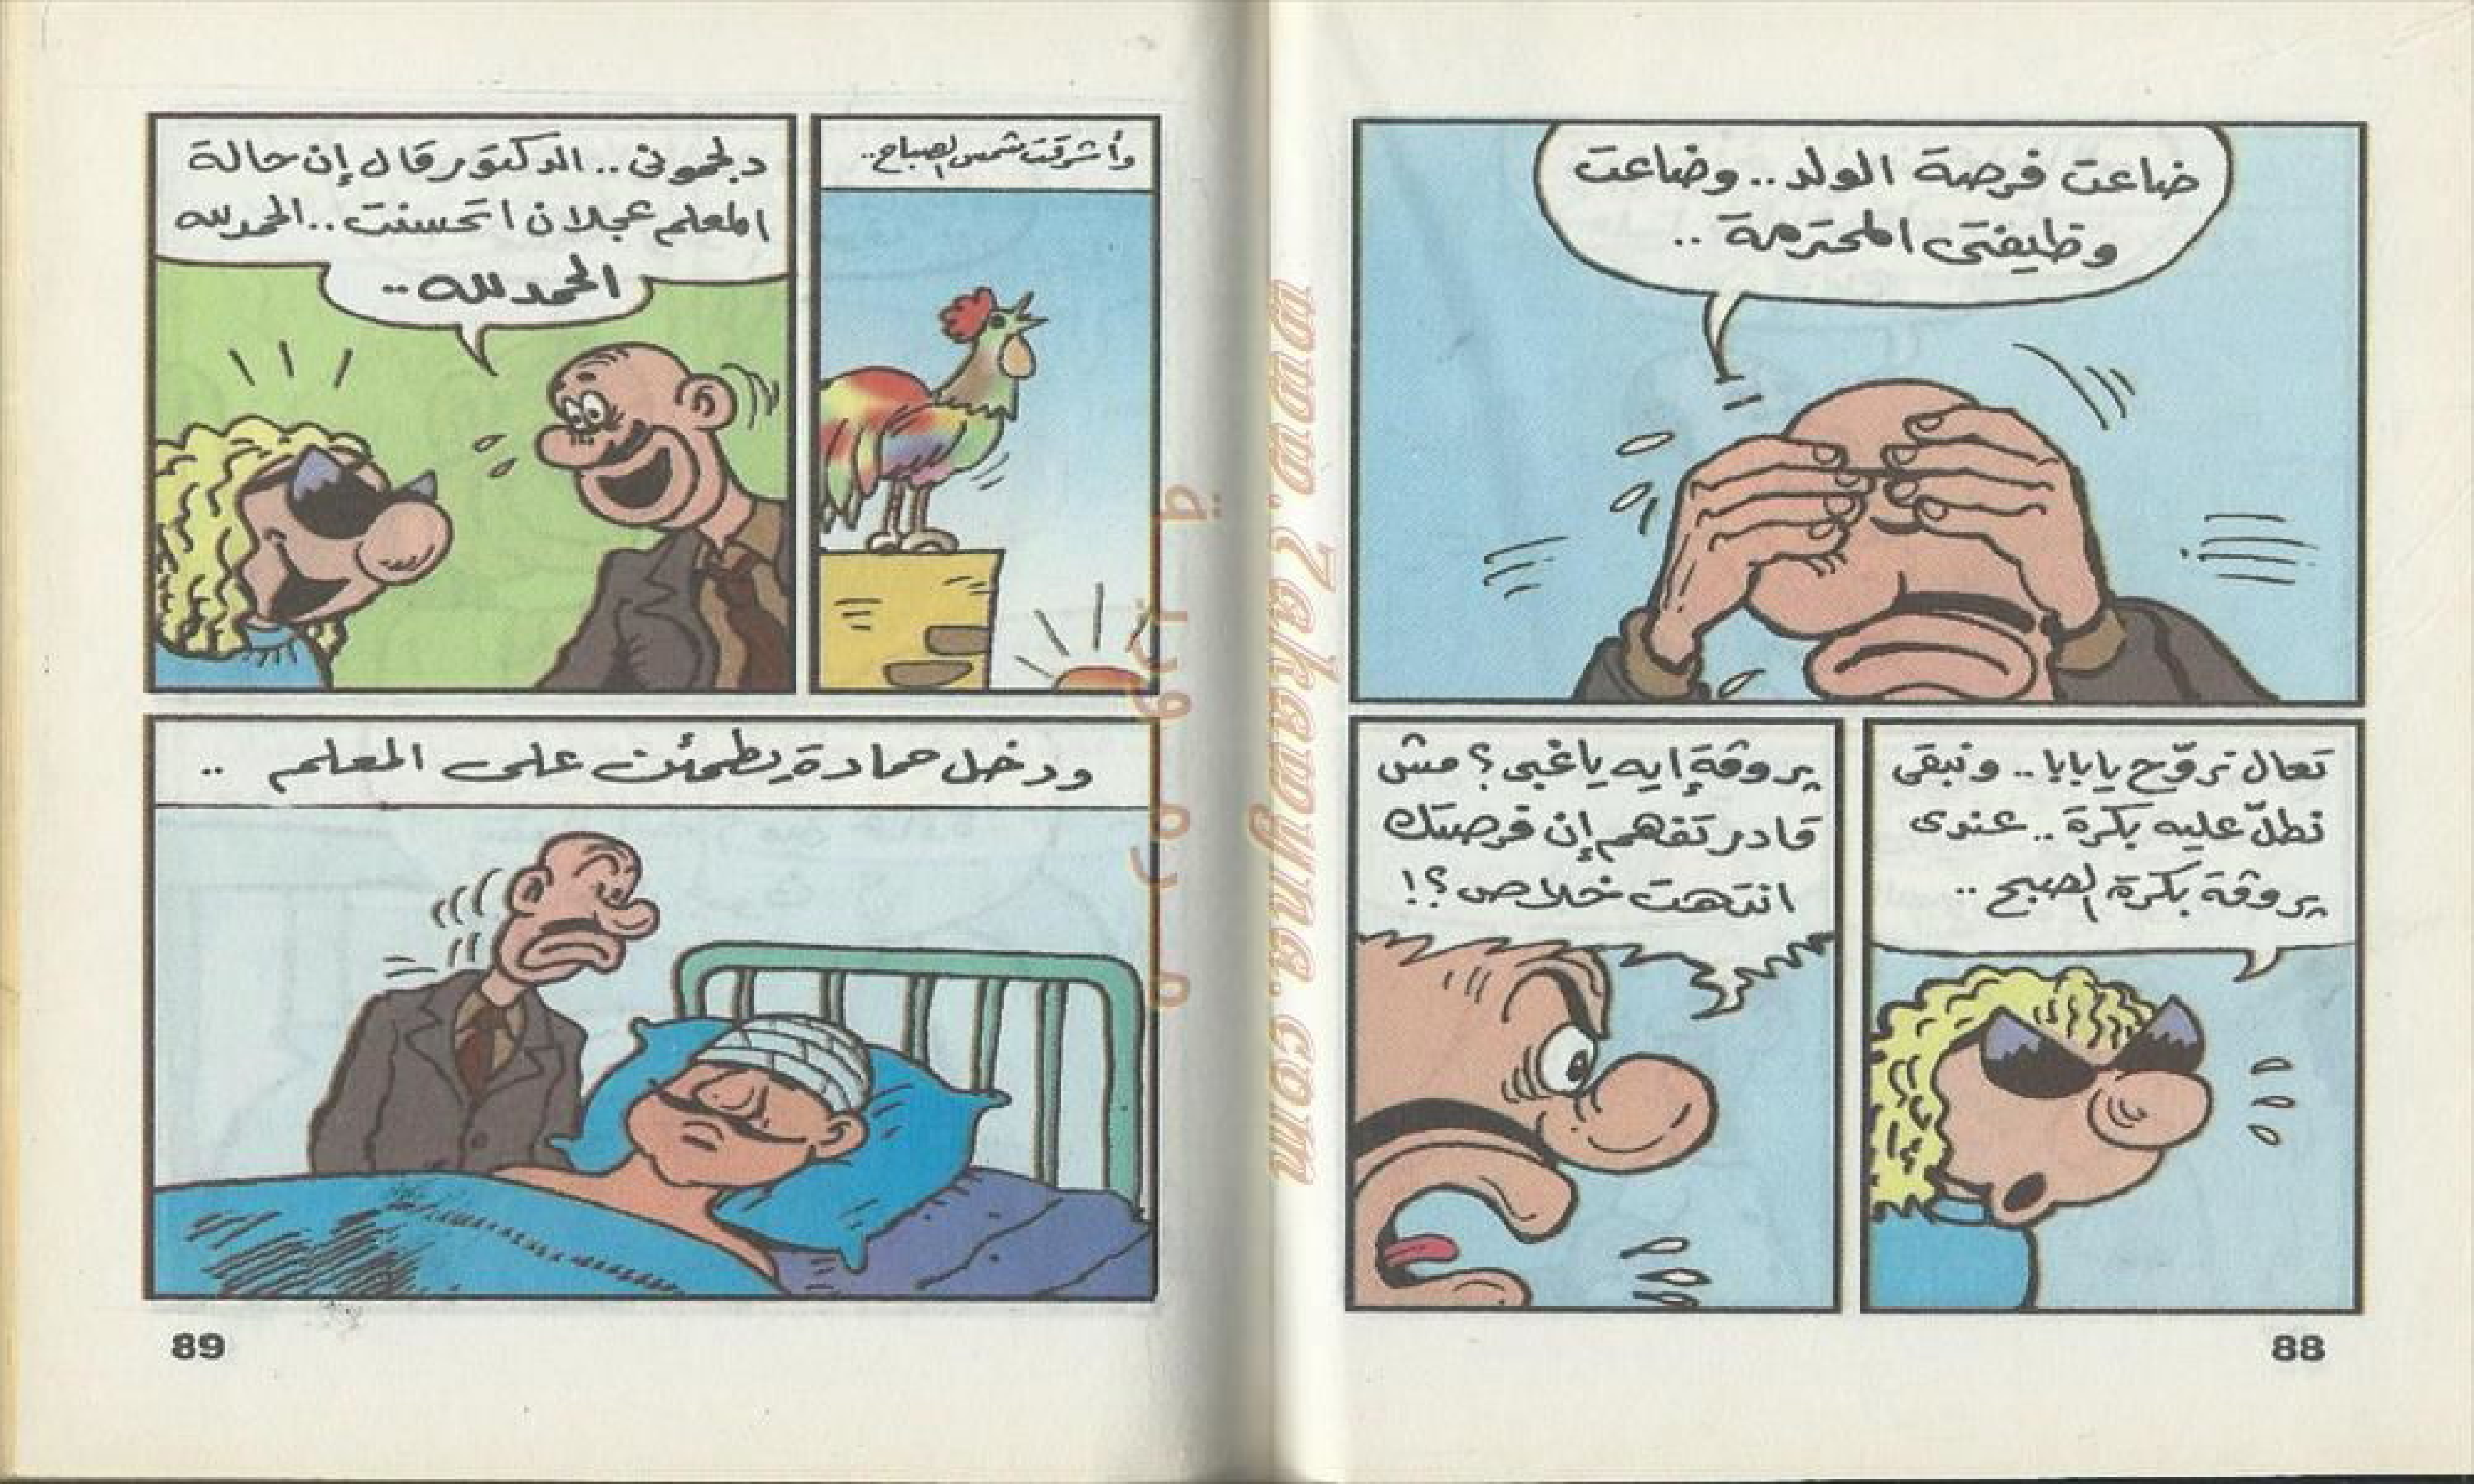 ضاعت فرصة الولد.. وضاعت
وظيفتى المحترمة..
تعال نروّح يا بابا.. ونبقى
نطلّ عليه بكرة.. عندى
بروڤة بكرة الصبح..
بروڤة إيه يا غبى؟ مش
قادر تفهم إن فرصتك
انتهت خلاص؟!
88
وأشرقت شمس الصباح..
الدكتور قال إن حالة
المعلم عجلان اتحسنت.. الحمد لله
الحمد لله..
ودخل حمادة يطمئن على المعلم ..
89
www.Zakawyna.com